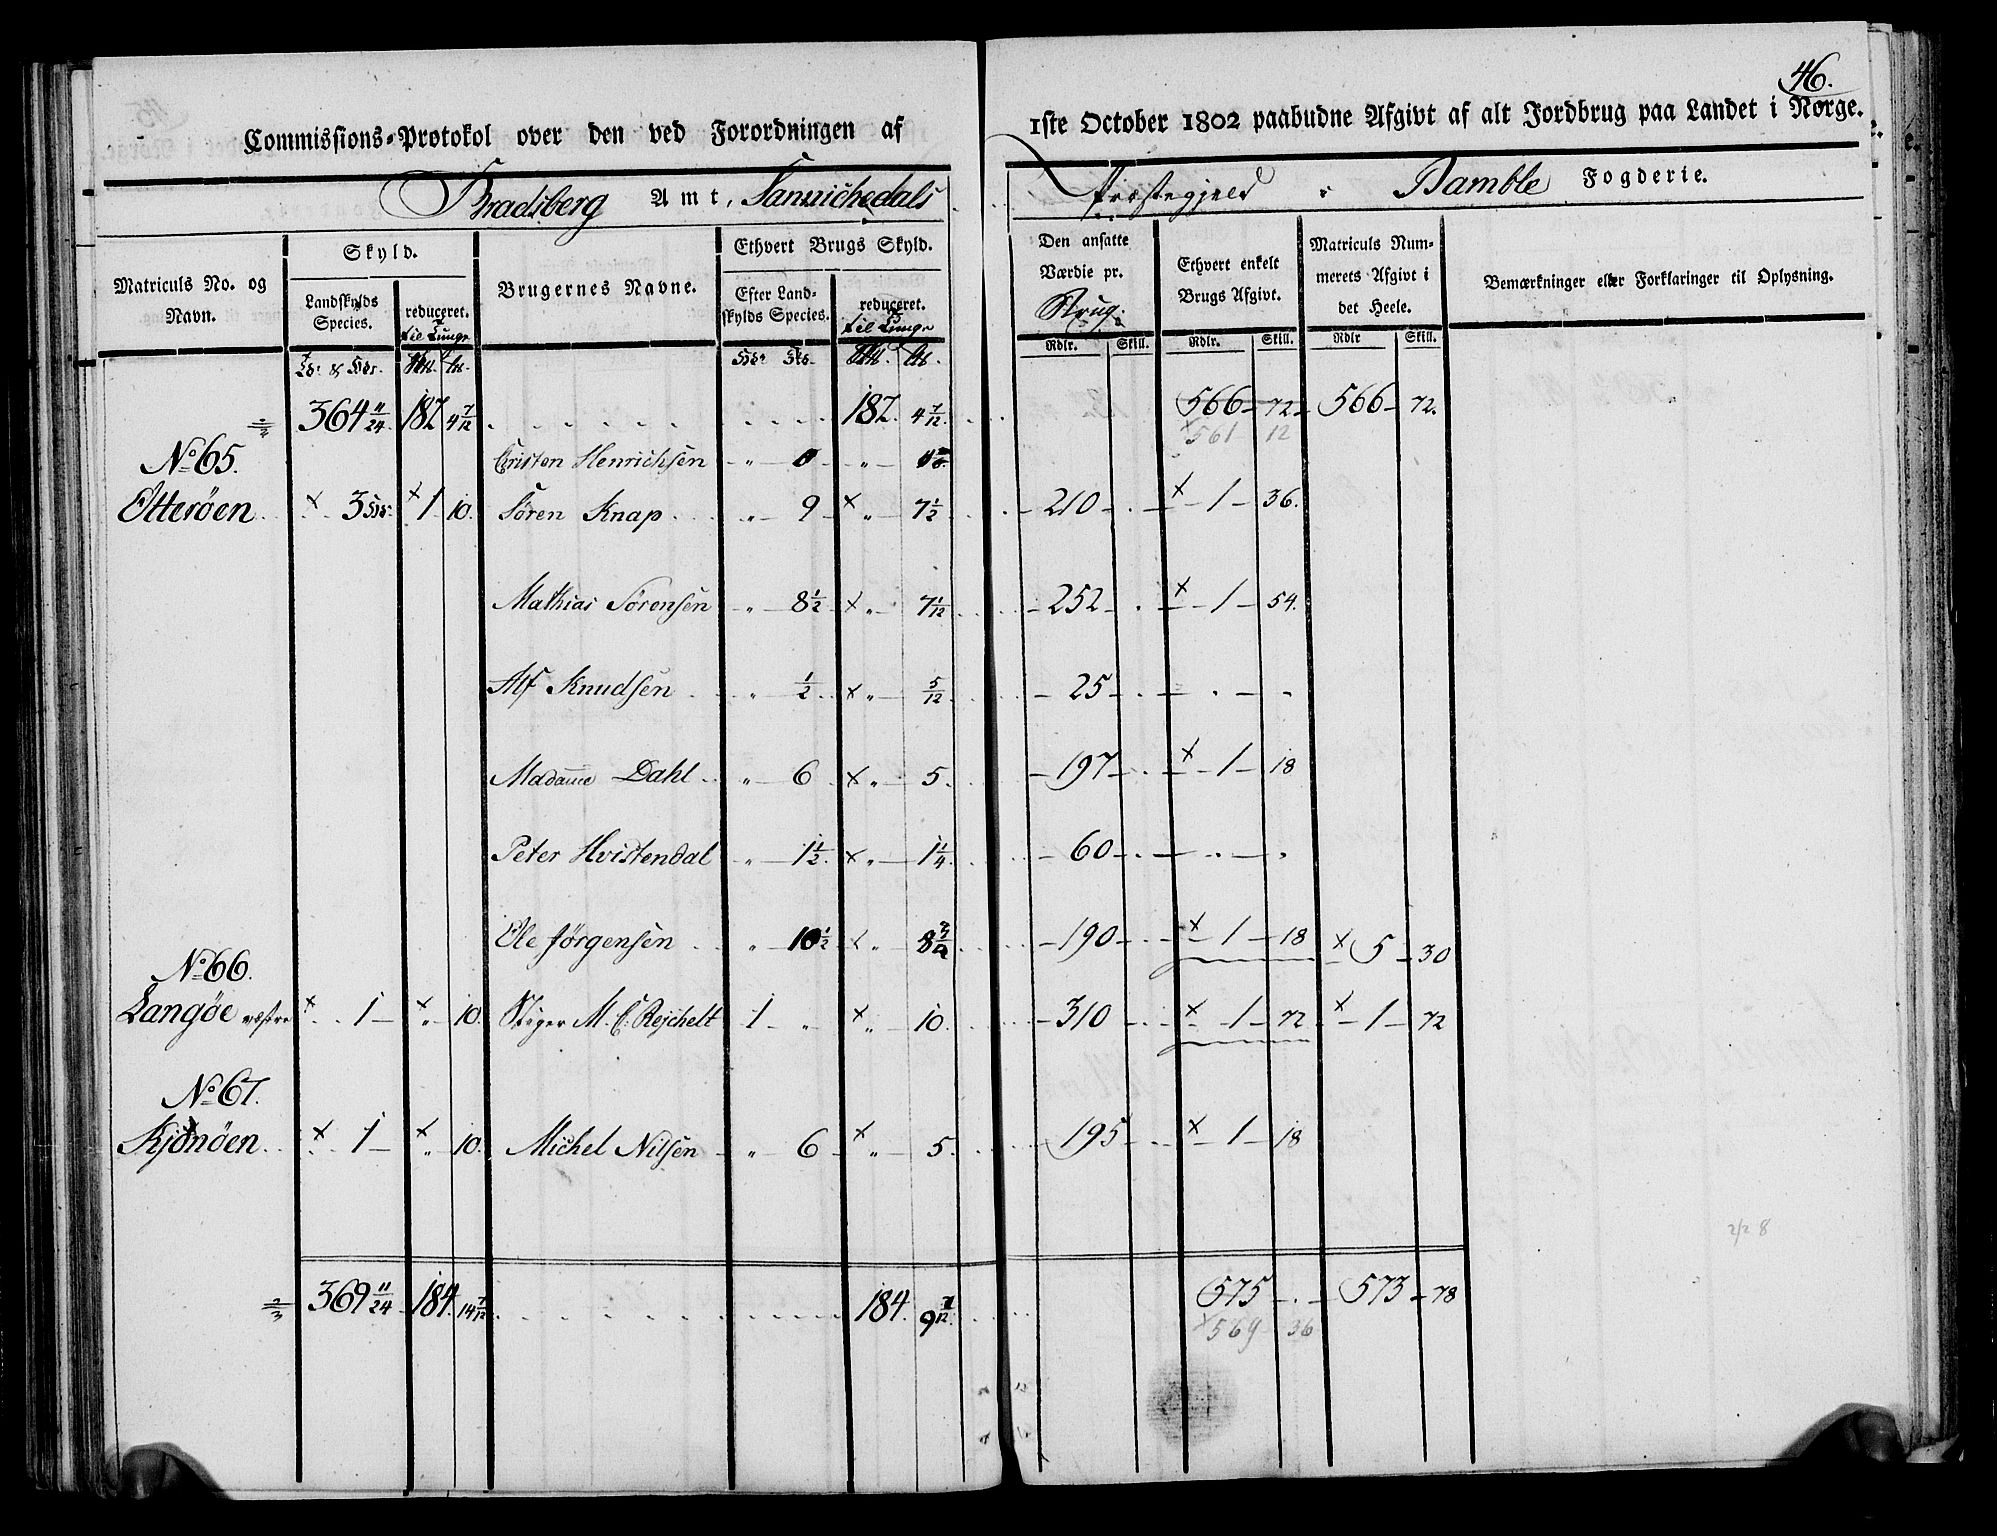 46.
Commissions-Protokol over den ved Forordningen af 1ste October 1802 paabudne Afgivt af alt Jordbrug paa Landet i Norge.
Bradsberg Amt, Sannichedals Præstegjeld i Bamble Fogderie.
Matriculs No. og Navn. Skyld. Brugernes Navne. Ethvert Brugs Skyld. Den ansatte Værdie pr. Brug. Ethvert enkelt Brugs Afgivt. Matriculs Nummerets Afgivt i det Heele. Bemærkninger eller Forklaringer til Oplysning.
Landskylds Species. reduceret. til Tunge Efter Landskylds Species. reduceret. til Tunge
Rdlr. Skill. Rdlr. Skill. Rdlr Skill.
364 11/24 182 4 7/12 182. 4 7/12 566 - 72 - 566 - 72.
561 12
No 65. Cristen Henrichsen
Otteröen 3 1 10. Sören Knap 9 7 1/2 210 1 - 36.
Mathias Sörensen 8 1/2 7 1/12 252 1 - 54.
Alf Knudsen 1/2 5/12 25
Madame Dahl 6 5. 197 1 - 18
Peter Hvistendal 1 1/2 1 1/4 60
Ole Jörgensen 10 1/2 8 190 1 - 18 5 - 30
No 66.
Langöe væstre 1 10. Stiger M. C. Rejchelt 1 10. 310 1 - 72 1 - 72
No 67.
Kjönöen 1 10. Michel Nilsen 6 5. 195 1 - 18
2/2 8
369 11/24 184. 14 7/12 184. 9 7/12 575 573 - 78
569 36